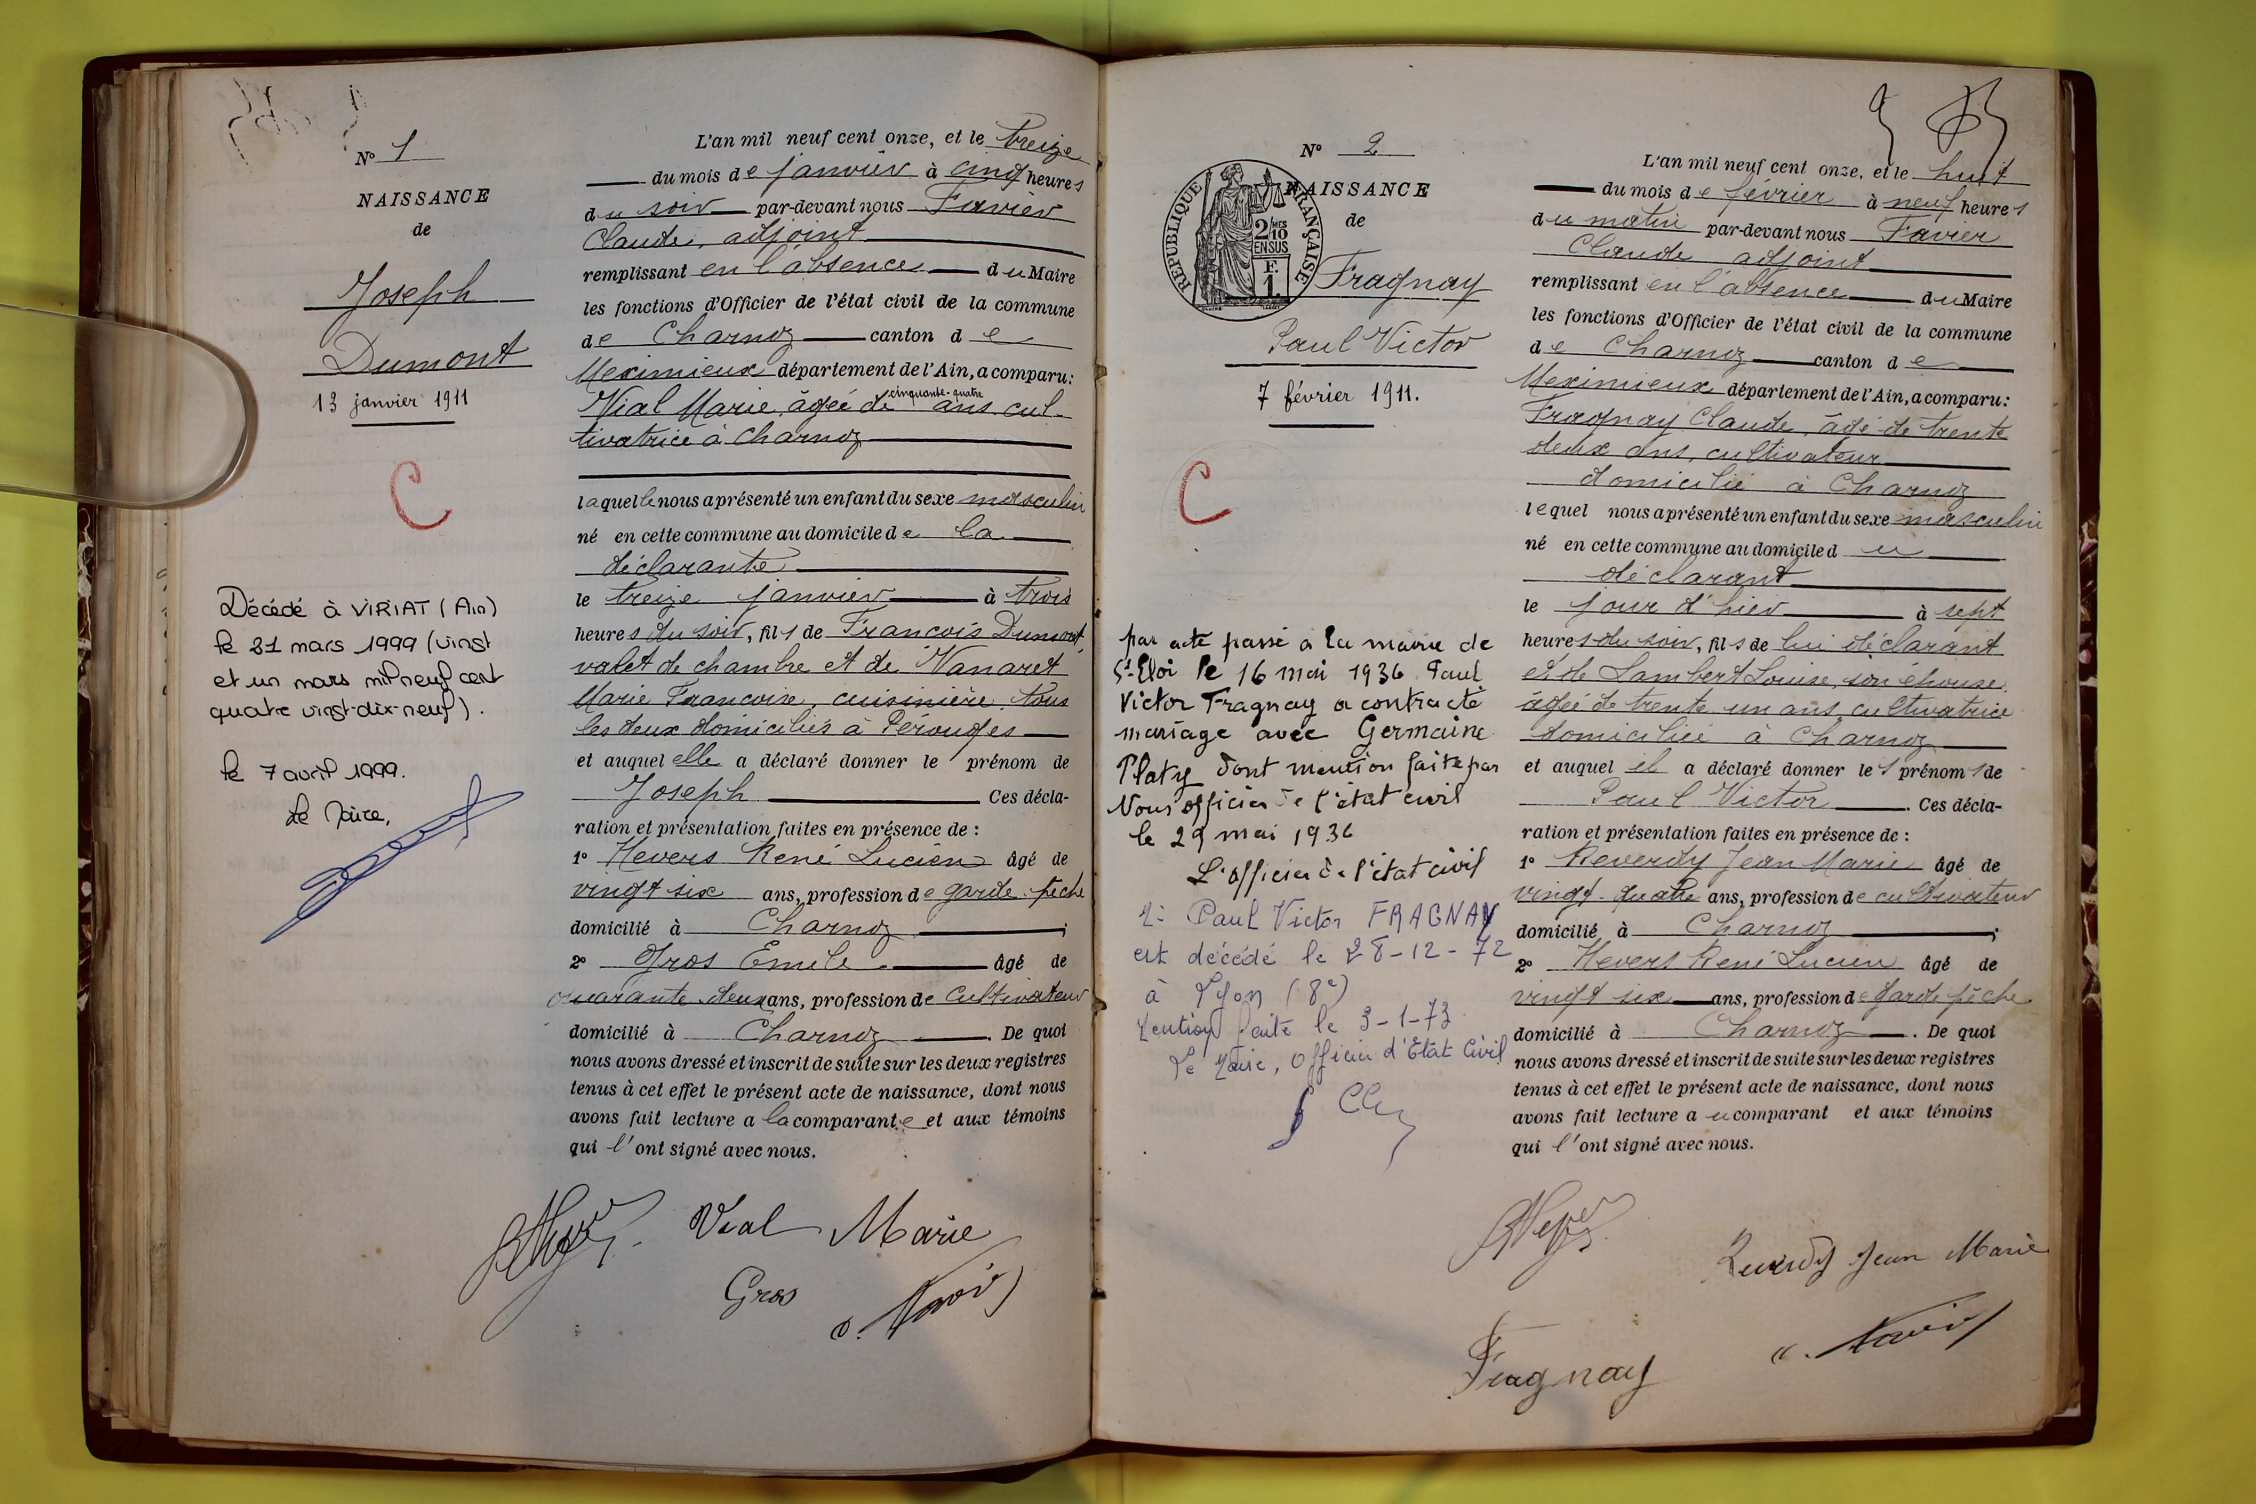 N° 1
NAISSANCE
de
Joseph
Dumont
13 janvier 1911
C
Décédé à VIRIAT (Ain)
le 21 mars 1999 (vingt
et un mars mil neuf cent
quatre vingt-dix-neuf).
le 7 avril 1999.
Le Maire,
L'an mil neuf cent onze, et le treize
du mois de janvier à cinq heures
du soir par-devant nous Favier
Claude, adjoint
remplissant en l'absence du Maire
les fonctions d'Officier de l'état civil de la commune
de Charnoz canton de
Meximieux département de l'Ain, a comparu:
Vial Marie, âgée de cinquante-quatre ans, cul-
tivatrice à Charnoz
laquelle nous a présenté un enfant du sexe masculin
né en cette commune au domicile de la
déclarante
le treize janvier à trois
heures du soir, fils de François Dumont,
valet de chambre et de Nanaret
Marie Françoise, cuisinière, tous
les deux domiciliés à Pérouges
et auquel elle a déclaré donner le prénom de
Joseph Ces décla-
ration et présentation faites en présence de :
1° Nevers René Lucien âgé de
vingt six ans, profession de garde-pêche
domicilié à Charnoz ;
2° Gros Emile âgé de
quarante-deux ans, profession de cultivateur
domicilié à Charnoz. De quoi
nous avons dressé et inscrit de suite sur les deux registres
tenus à cet effet le présent acte de naissance, dont nous
avons fait lecture a la comparante et aux témoins
qui l'ont signé avec nous.
Vial Marie
Gros
N° 2
NAISSANCE
de
REPUBLIQUE FRANÇAISE
2/10 MES
EN SUS
F.
1
Fragnay
Paul Victor
7 février 1911.
C
par acte passé à la mairie de
St Eloi le 16 mai 1936 Paul
Victor Fragnay a contracté
mariage avec Germaine
Platy dont mention faite par
Nous officier de l'état civil
le 29 mai 1936
L'officier de l'état civil
2: Paul Victor FRAGNAY
est décédé le 28-12-72
à Lyon (8e)
Mention faite le 3-1-73
Le Maire, Officier d'Etat Civil
L'an mil neuf cent onze, et le huit
du mois de février à neuf heures
du matin par-devant nous Favier
Claude adjoint
remplissant en l'absence du Maire
les fonctions d'Officier de l'état civil de la commune
de Charnoz canton de
Meximieux département de l'Ain, a comparu:
Fragnay Claude, âgé de trente
deux ans, cultivateur
domicilié à Charnoz
lequel nous a présenté un enfant du sexe masculin
né en cette commune au domicile du
déclarant
le jour d'hier à sept
heures du soir, fils de lui déclarant
et de Lambert Louise, son épouse,
âgée de trente un ans, cultivatrice
domiciliée à Charnoz
et auquel il a déclaré donner les prénoms de
Paul Victor. Ces décla-
ration et présentation faites en présence de :
1° Reverdy Jean Marie âgé de
vingt-quatre ans, profession de cultivateur
domicilié à Charnoz ;
2° Nevers René Lucien âgé de
vingt six ans, profession de garde pêche
domicilié à Charnoz. De quoi
nous avons dressé et inscrit de suite sur les deux registres
tenus à cet effet le présent acte de naissance, dont nous
avons fait lecture au comparant et aux témoins
qui l'ont signé avec nous.
Reverdy Jean Marie
Fragnay